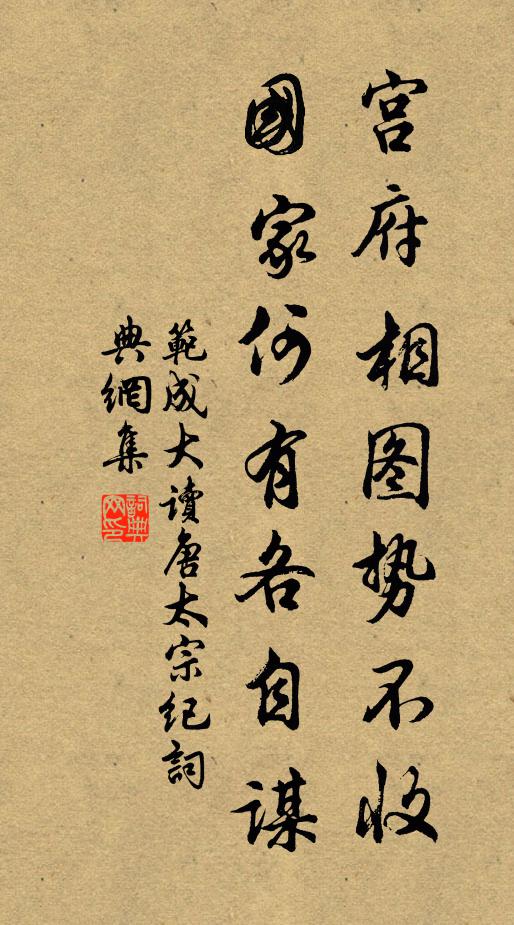 宫府相图势不收
國家何有各自謀
範成大讀唐太宗纪詞
典網集
詞典网印